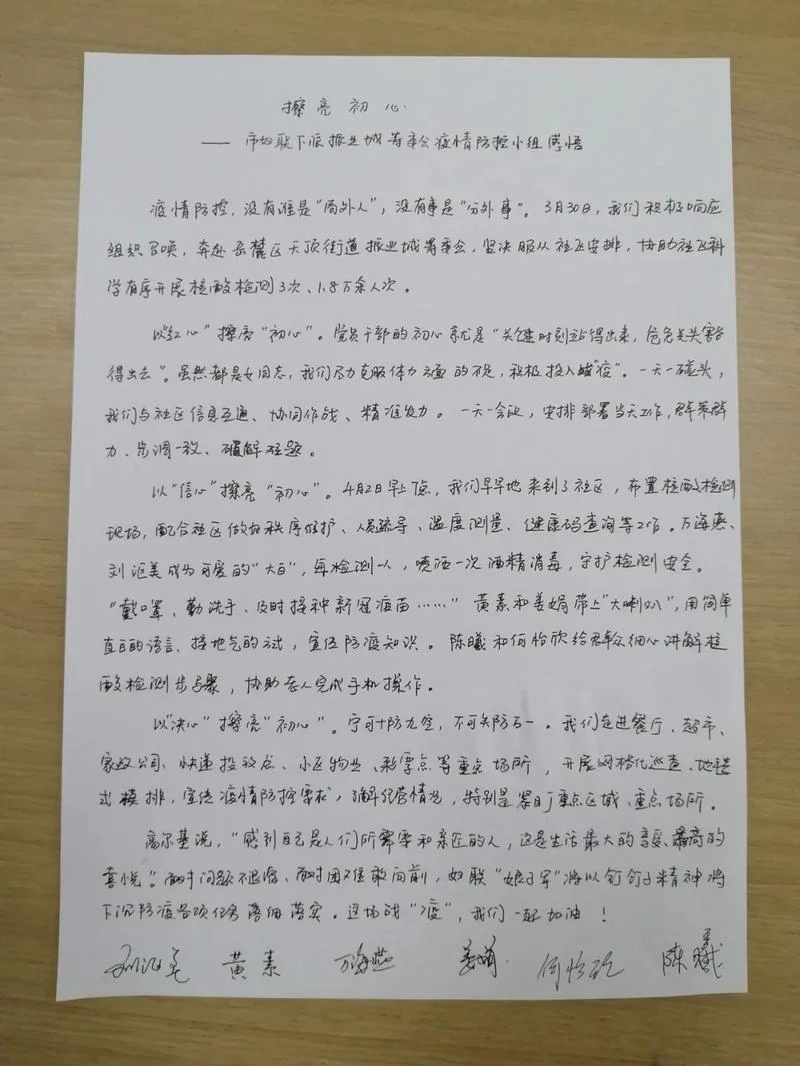 擦亮初心
——市妇联下派振业城筹委会疫情防控小组感悟
疫情防控，没有谁是“局外人”，没有事是“分外事”。3月30日，我们积极响应
组织召唤，奔赴岳麓区天顶街道振业城筹委会，坚决服从社区安排，协助社区科
学有序开展核酸检测3次、1.8万余人次。
以“红心”擦亮“初心”。党员干部的初心就是“关键时刻站得出来，危急关头豁
得出去”。虽然都是女同志，我们尽力克服体力方面的不足，积极投入战“疫”。一天一碰头，
我们与社区信息互通、协同作战、精准发力。一天一会议，安排部署当天工作，群策群
力、步调一致、破解难题。
以“信心”擦亮“初心”。4月2日早上 ，我们早早地来到了社区，布置核酸检测
现场，配合社区做好秩序维护、人员疏导、温度测量、健康码查询等工作。万海燕、
刘汇美成为可爱的“大白”，每检测一人，喷洒一次酒精消毒，守护检测安全。
“戴口罩、勤洗手、及时接种新冠疫苗……”黄素和姜娟带上“大喇叭”，用简单
直白的语言、接地气的方式，宣传防疫知识。陈曦和何怡欣给群众细心讲解核
酸检测步骤，协助老人完成手机操作。
以“决心”擦亮“初心”。宁可十防九空，不可失防万一。我们走进餐厅、超市、
家政公司、快递投放点、小区物业、彩票点等重点场所，开展网格化巡查、地毯
式摸排，宣传疫情防控要求，了解经营情况，特别是紧盯重点区域、重点场所。
高尔基说，“感到自己是人们所需要和亲近的人，这是生活最大的享受、最高的
喜悦”。面对问题不退缩、面对困难敢向前，妇联“娘子军”将以钉钉子精神将
下沉防疫各项任务落细落实。这场战“疫”，我们一起加油！
刘汇美 黄素 万海燕 姜娟 何怡欣 陈曦